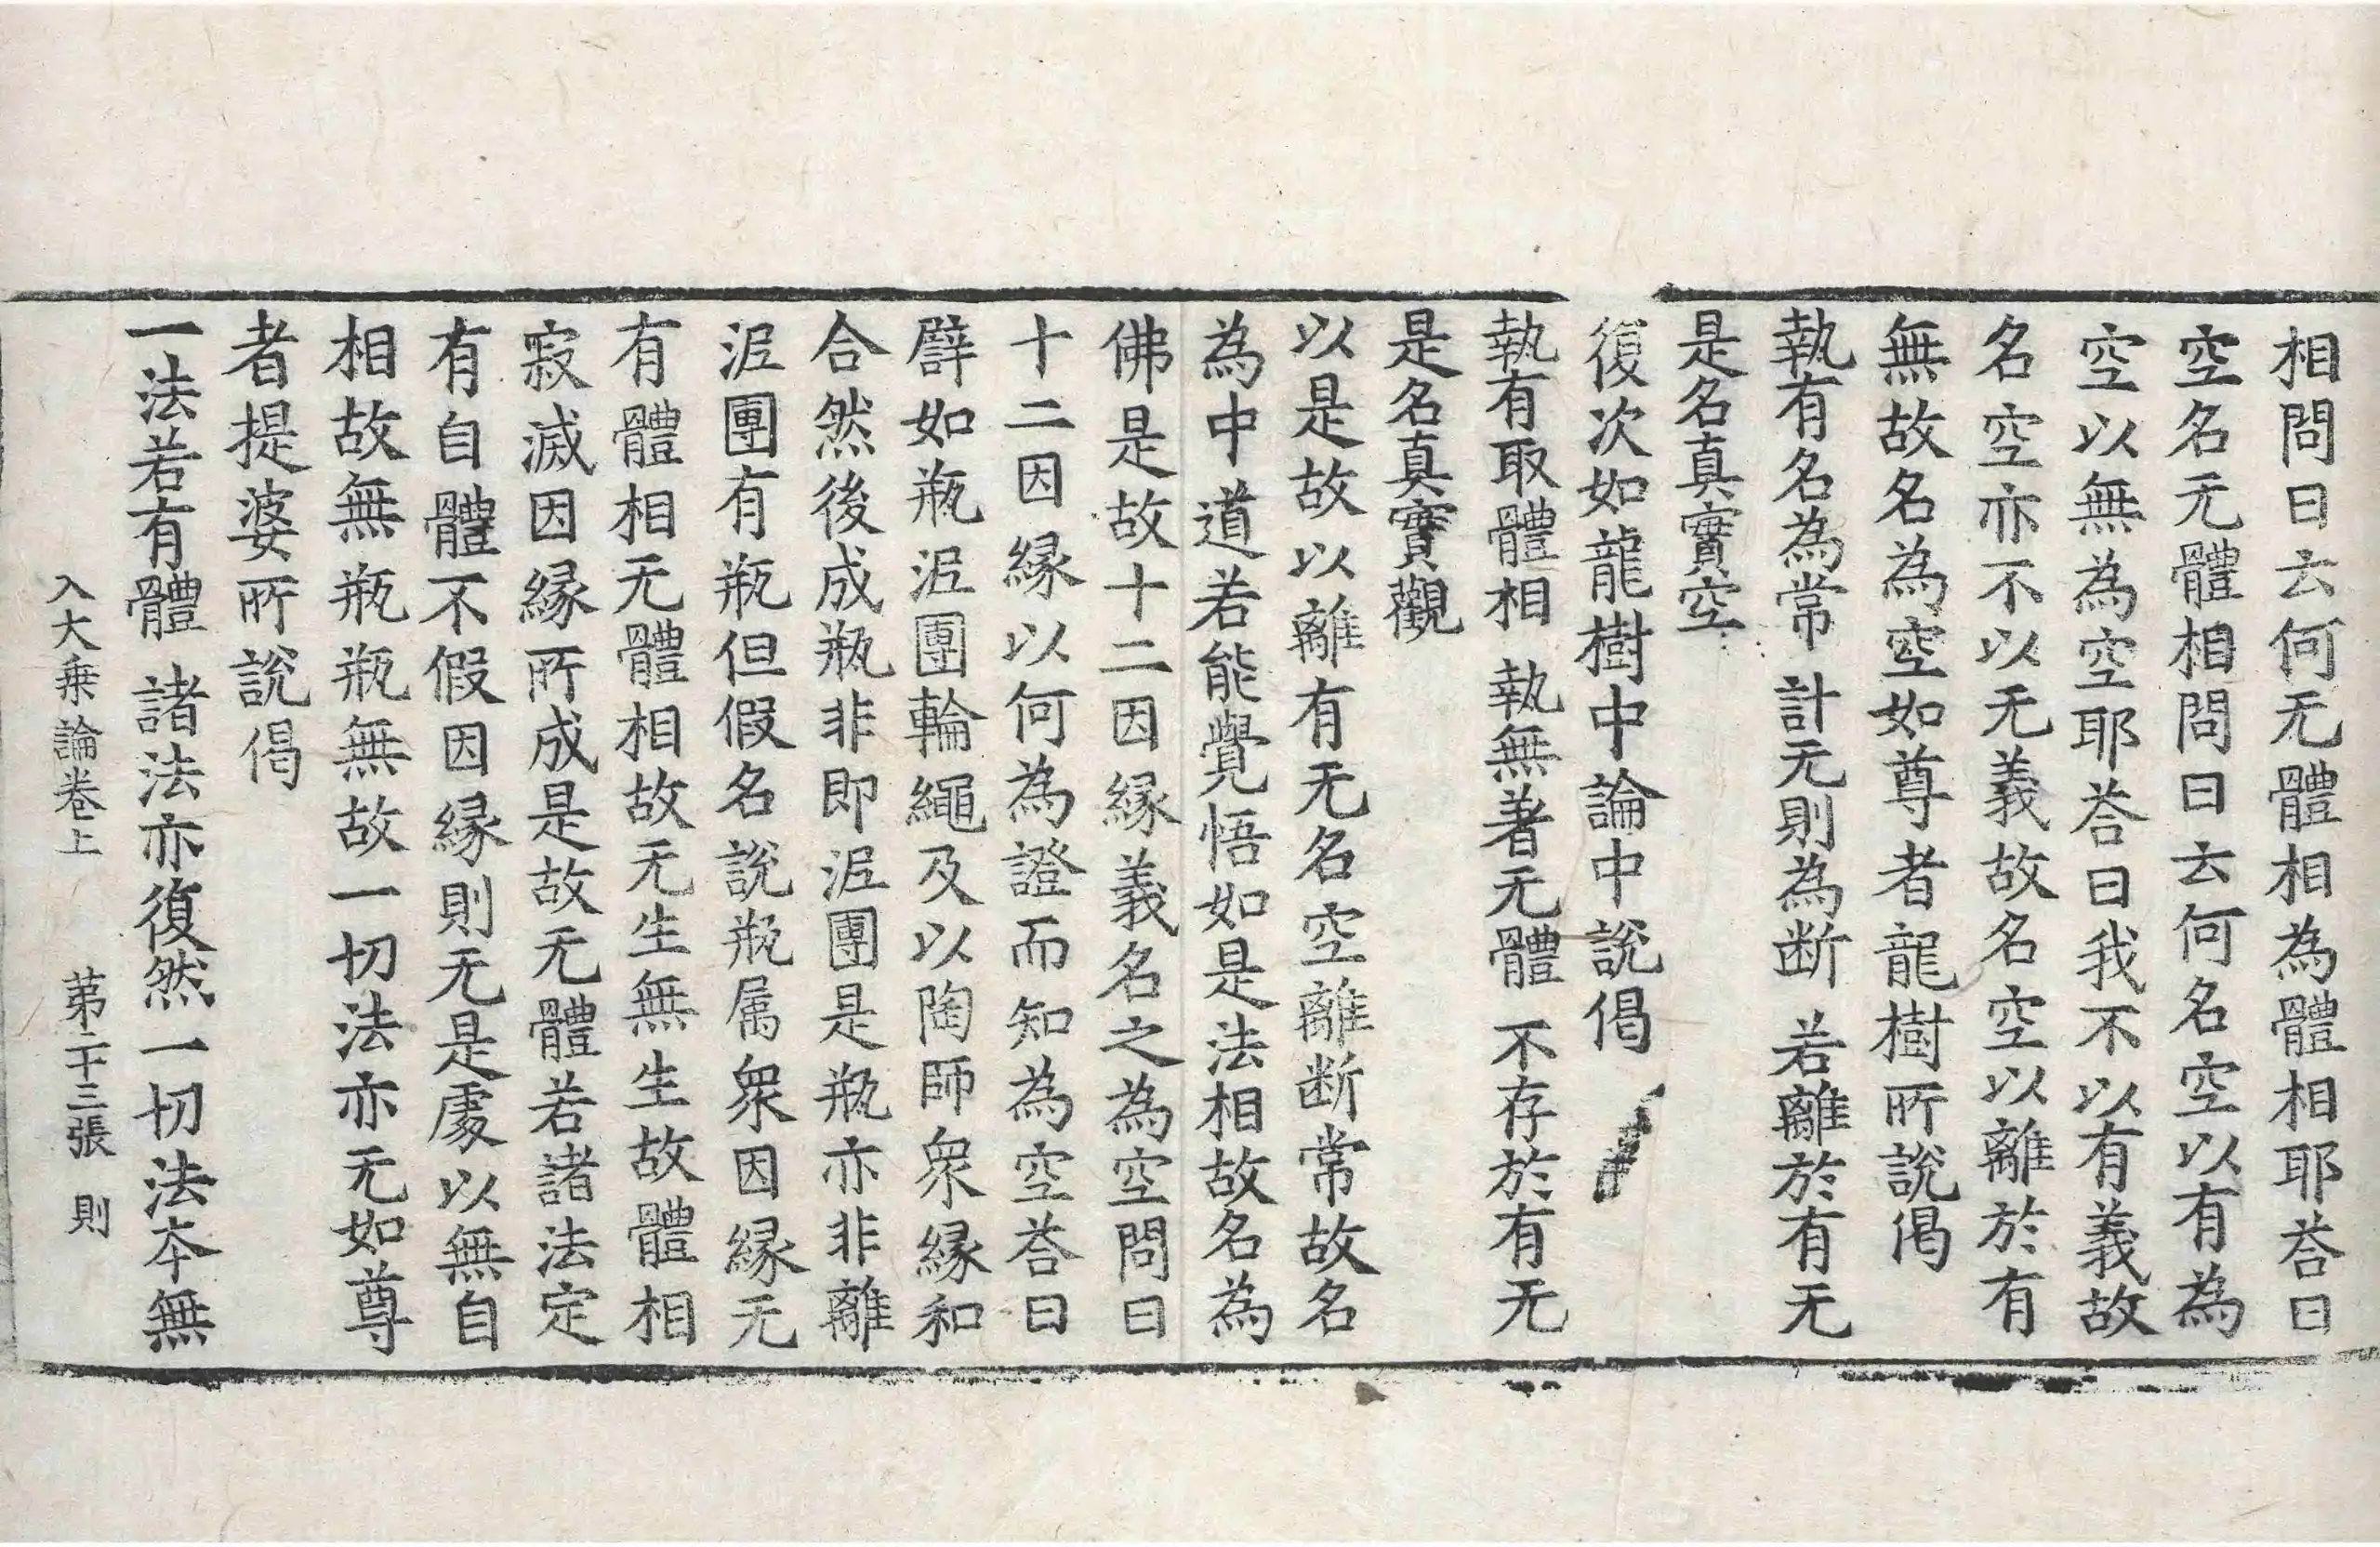 相問曰云何无體相為體相耶荅曰
空名无體相問曰云何名空以有為
空以無為空耶荅曰我不以有義故
名空亦不以无義故名空以離於有
無故名為空如尊者龍樹所說偈
執有名為常 計无則為断 若離於有无
是名真實空
復次如龍樹中論中說偈
執有取體相 執無著无體 不存於有无
是名真實觀
以是故以離有无名空離断常故名
為中道若能覺悟如是法相故名為
佛是故十二因縁義名之為空問曰
十二因縁以何為證而知為空荅曰
譬如瓶泥團輪繩及以陶師衆縁和
合然後成瓶非即泥團是瓶亦非離
泥團有瓶但假名說瓶属衆因縁无
有體相无體相故无生無生故體相
寂滅因縁所成是故无體若諸法定
有自體不假因縁則无是處以無自
相故無瓶瓶無故一切法亦无如尊
者提婆所說偈
一法若有體 諸法亦復然 一切法夲無
入大乗論卷上 苐二十三張 則